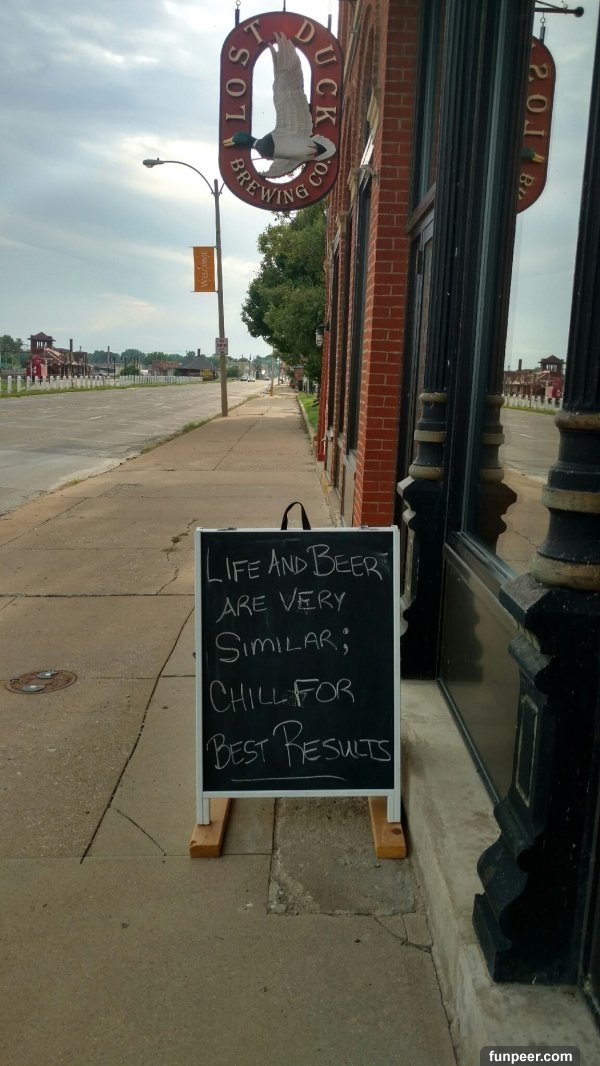 LOST DUCK
BREWING CO.
LOST
BR
WELCOME
LIFE AND BEER
ARE VERY
SIMILAR;
CHILL FOR
BEST RESULTS
funpeer.com